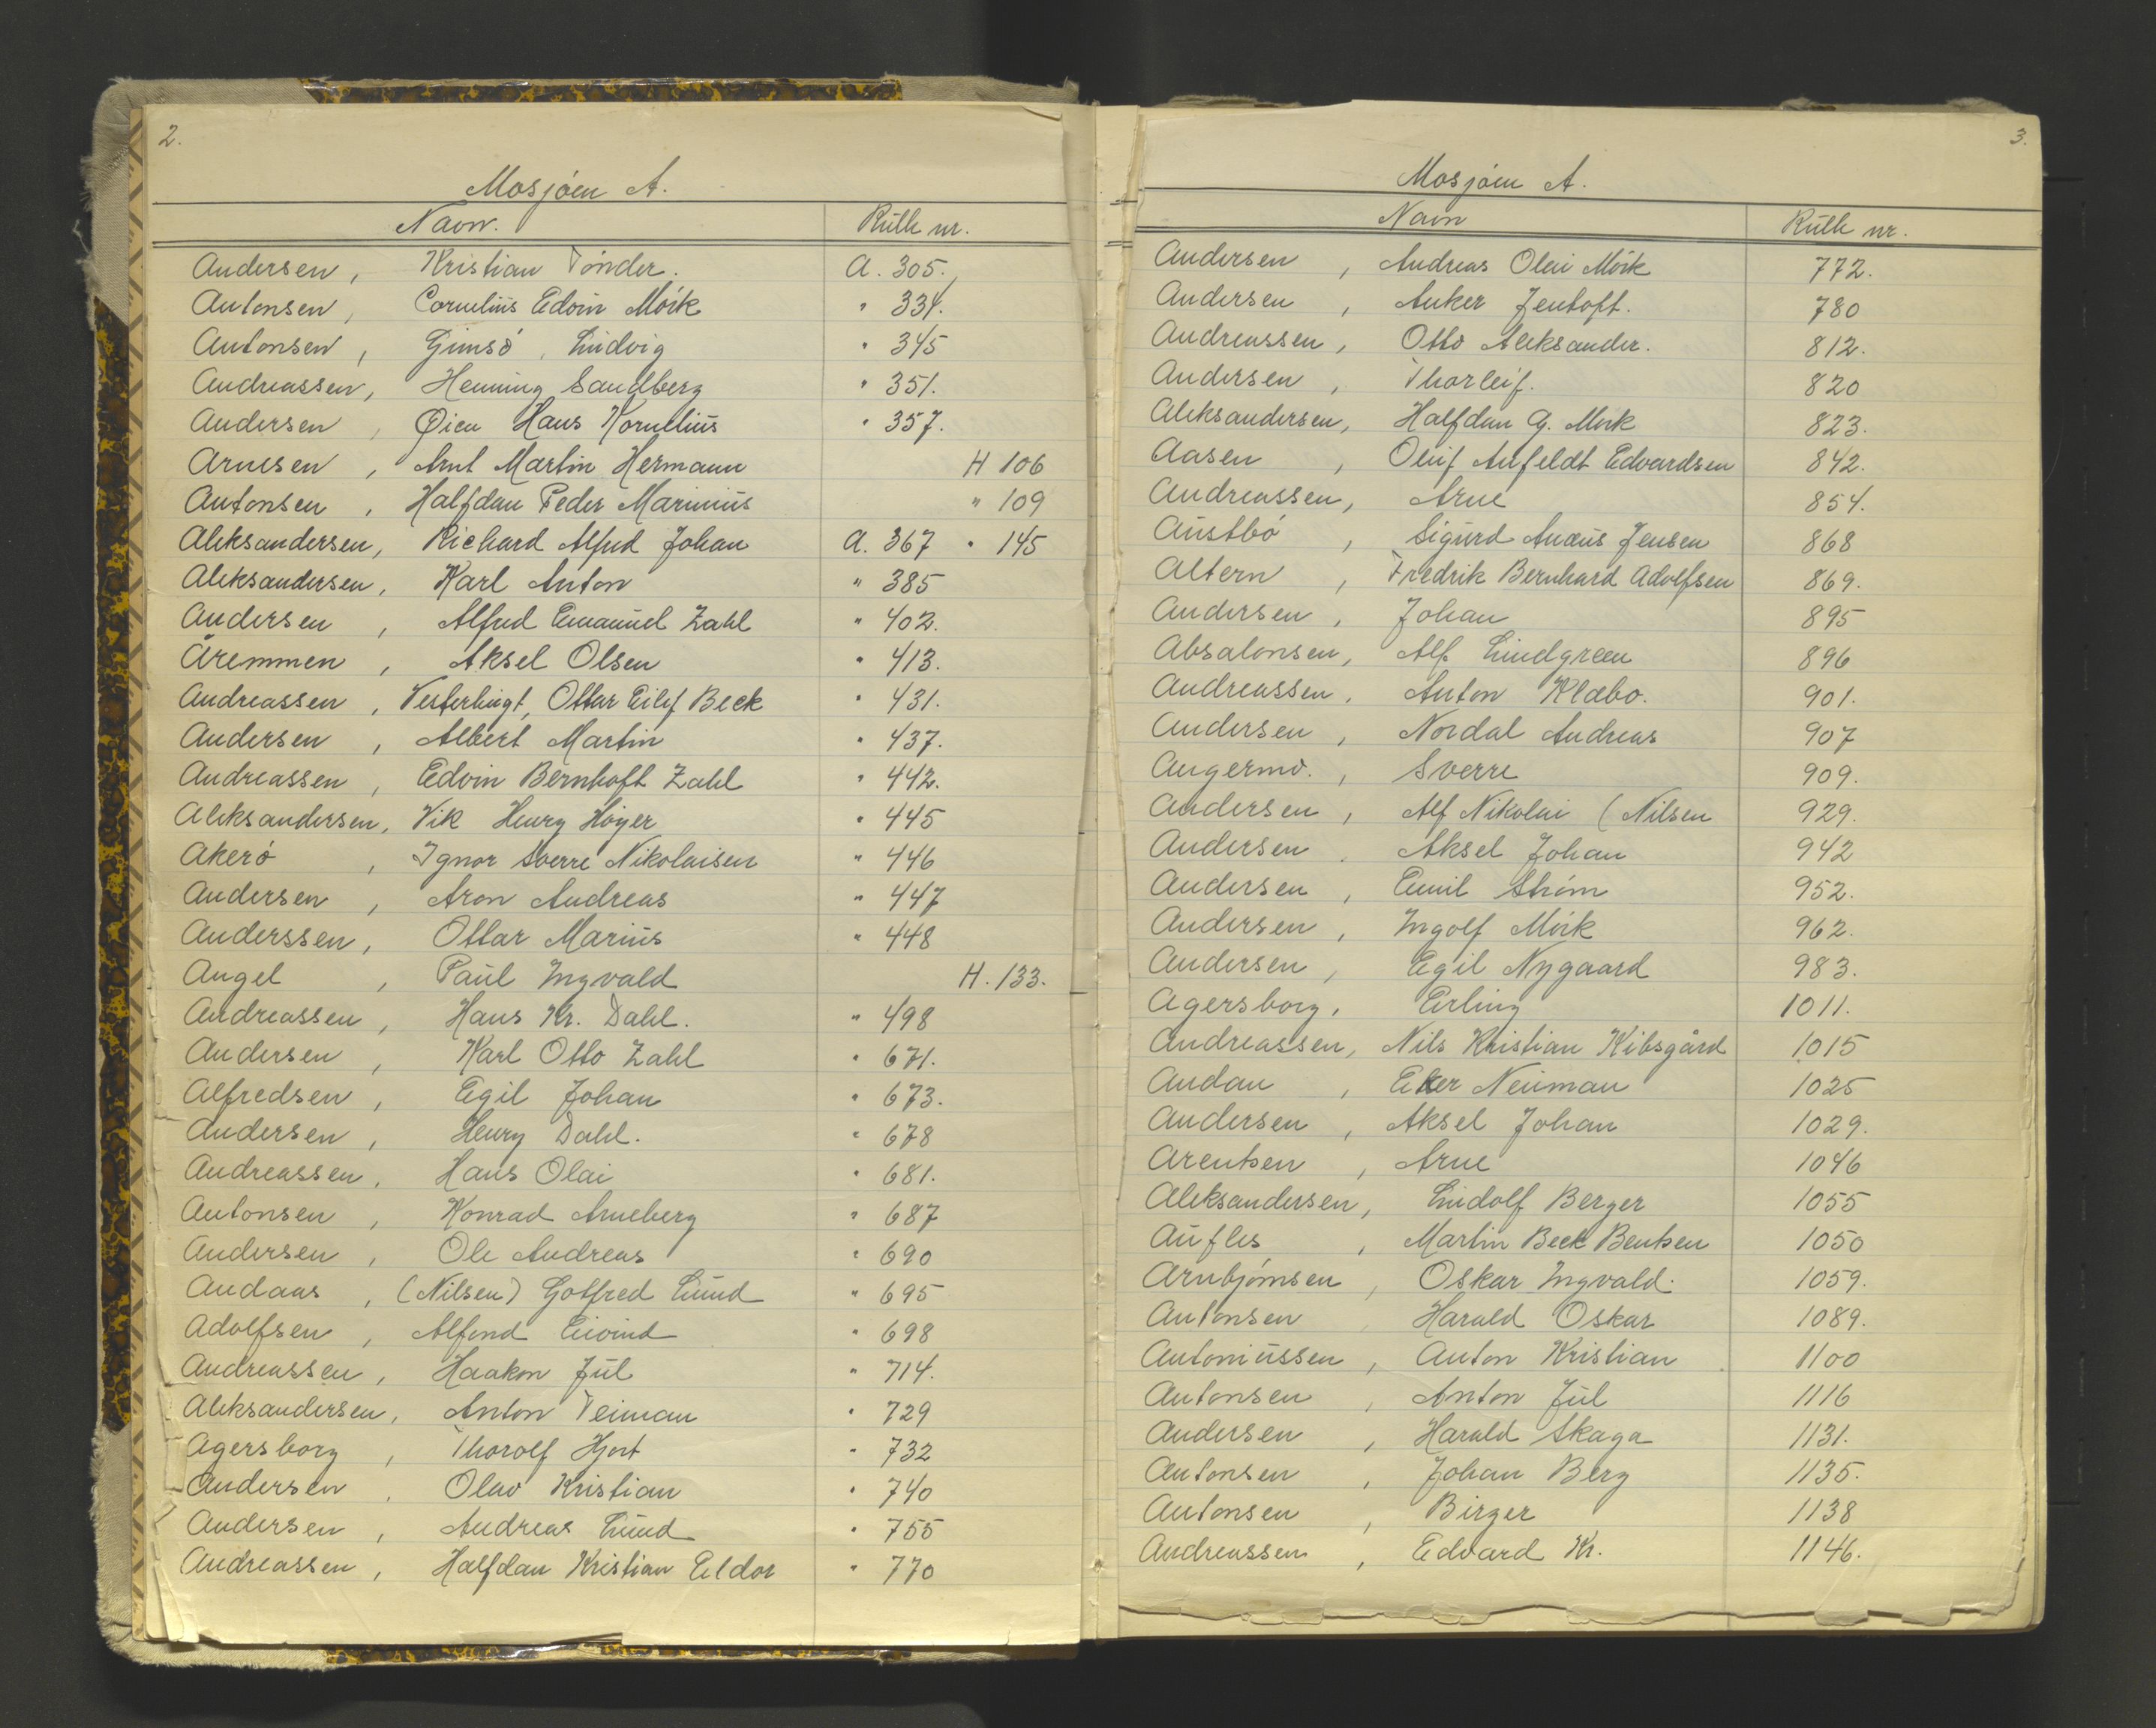 2.
Mosjöen A.
Navn. Rulle nr.
Andersen, Kristian Tönder. A. 305.
Antonsen, Cornelius Edvin Mörk " 334.
Antonsen, Gimsö, Ludvig " 345
Andreassen, Henning Sandberg " 351.
Andersen, Øien Hans Kornelius " 357.
Arnesen, Arnt Martin Hermann H 106
Antonsen, Halfdan Peder Marinius " 109
Aleksandersen, Richard Alfred Johan A. 367 " 145
Aleksandersen, Karl Anton " 385
Andersen, Alfred Emanuel Zahl " 402.
Åremmen, Aksel Olsen " 413.
Andreassen, Ottar Eilif Beck " 431.
Andersen, Albert Martin " 437.
Andreassen, Edvin Bernhoft Zahl " 442.
Aleksandersen, Vik Henry Höyer " 445
Akerö, Ignor Sverre Nikolaisen " 446
Andersen, Aron Andreas " 447
Anderssen, Ottar Marius " 448
Angel, Paul Ingvald H. 133.
Andreassen, Hans Kr. Dahl. " 498
Andersen, Karl Otto Zahl " 671.
Alfredsen, Egil Johan " 673.
Andersen, Henry Dahl. " 678
Andreassen, Hans Olai " 681.
Antonsen, Konrad Arneberg " 687
Andersen, Ole Andreas " 690
Andaas, (Nilsen) Gotfred Lund " 695
Adolfsen, Alfond Eivind " 698
Andreassen, Haakon Jul " 714.
Aleksandersen, Anton Teiman " 729
Agersborg, Thorolf Hjort " 732
Andersen, Olav Kristian " 740
Andersen, Andreas Lund " 755
Andreassen, Halfdan Kristian Eldor " 770
3.
Mosjöen A.
Navn Rulle nr.
Andersen, Andreas Olai Mörk 772.
Andersen, Anker Jentoft. 780
Andreassen, Otto Aleksander. 812.
Andersen, Thorleif. 820
Aleksandersen, Halfdan G. Mörk 823.
Aasen, Oluf Anfeldt Edvardsen 842.
Andreassen, Arne 854.
Austbö, Sigurd Ananus Jensen 868
Altern, Fredrik Bernhard Adolfsen 869.
Andersen, Johan 895
Absalonsen, Alf Lindgreen 896
Andreassen, Anton Klæbo. 901.
Andersen, Nordal Andreas 907
Angermo., Sverre 909.
Andersen, Alf Nikolai (Nilsen 929.
Andersen, Aksel Johan 942
Andersen, Emil Ström 952.
Andersen, Ingolf Mörk 962.
Andersen, Egil Nygaard 983.
Agersborg, Erling 1011.
Andreassen, Nils Kristian Kibsgård 1015
Andan, Eker Neuman 1025
Andersen, Aksel Johan 1029.
Arentsen, Arne 1046
Aleksandersen, Lindolf Berger 1055
Aufles, Martin Beck Bentsen 1050
Arnbjörnsen, Oskar Ingvald. 1059.
Antonsen, Harald Oskar 1089.
Antoniussen, Anton Kristian 1100
Antonsen, Anton Jul 1116
Andersen, Harald Skaga 1131.
Antonsen, Johan Berg 1135.
Antonsen, Birger 1138
Andreassen, Edvard Kr. 1146.